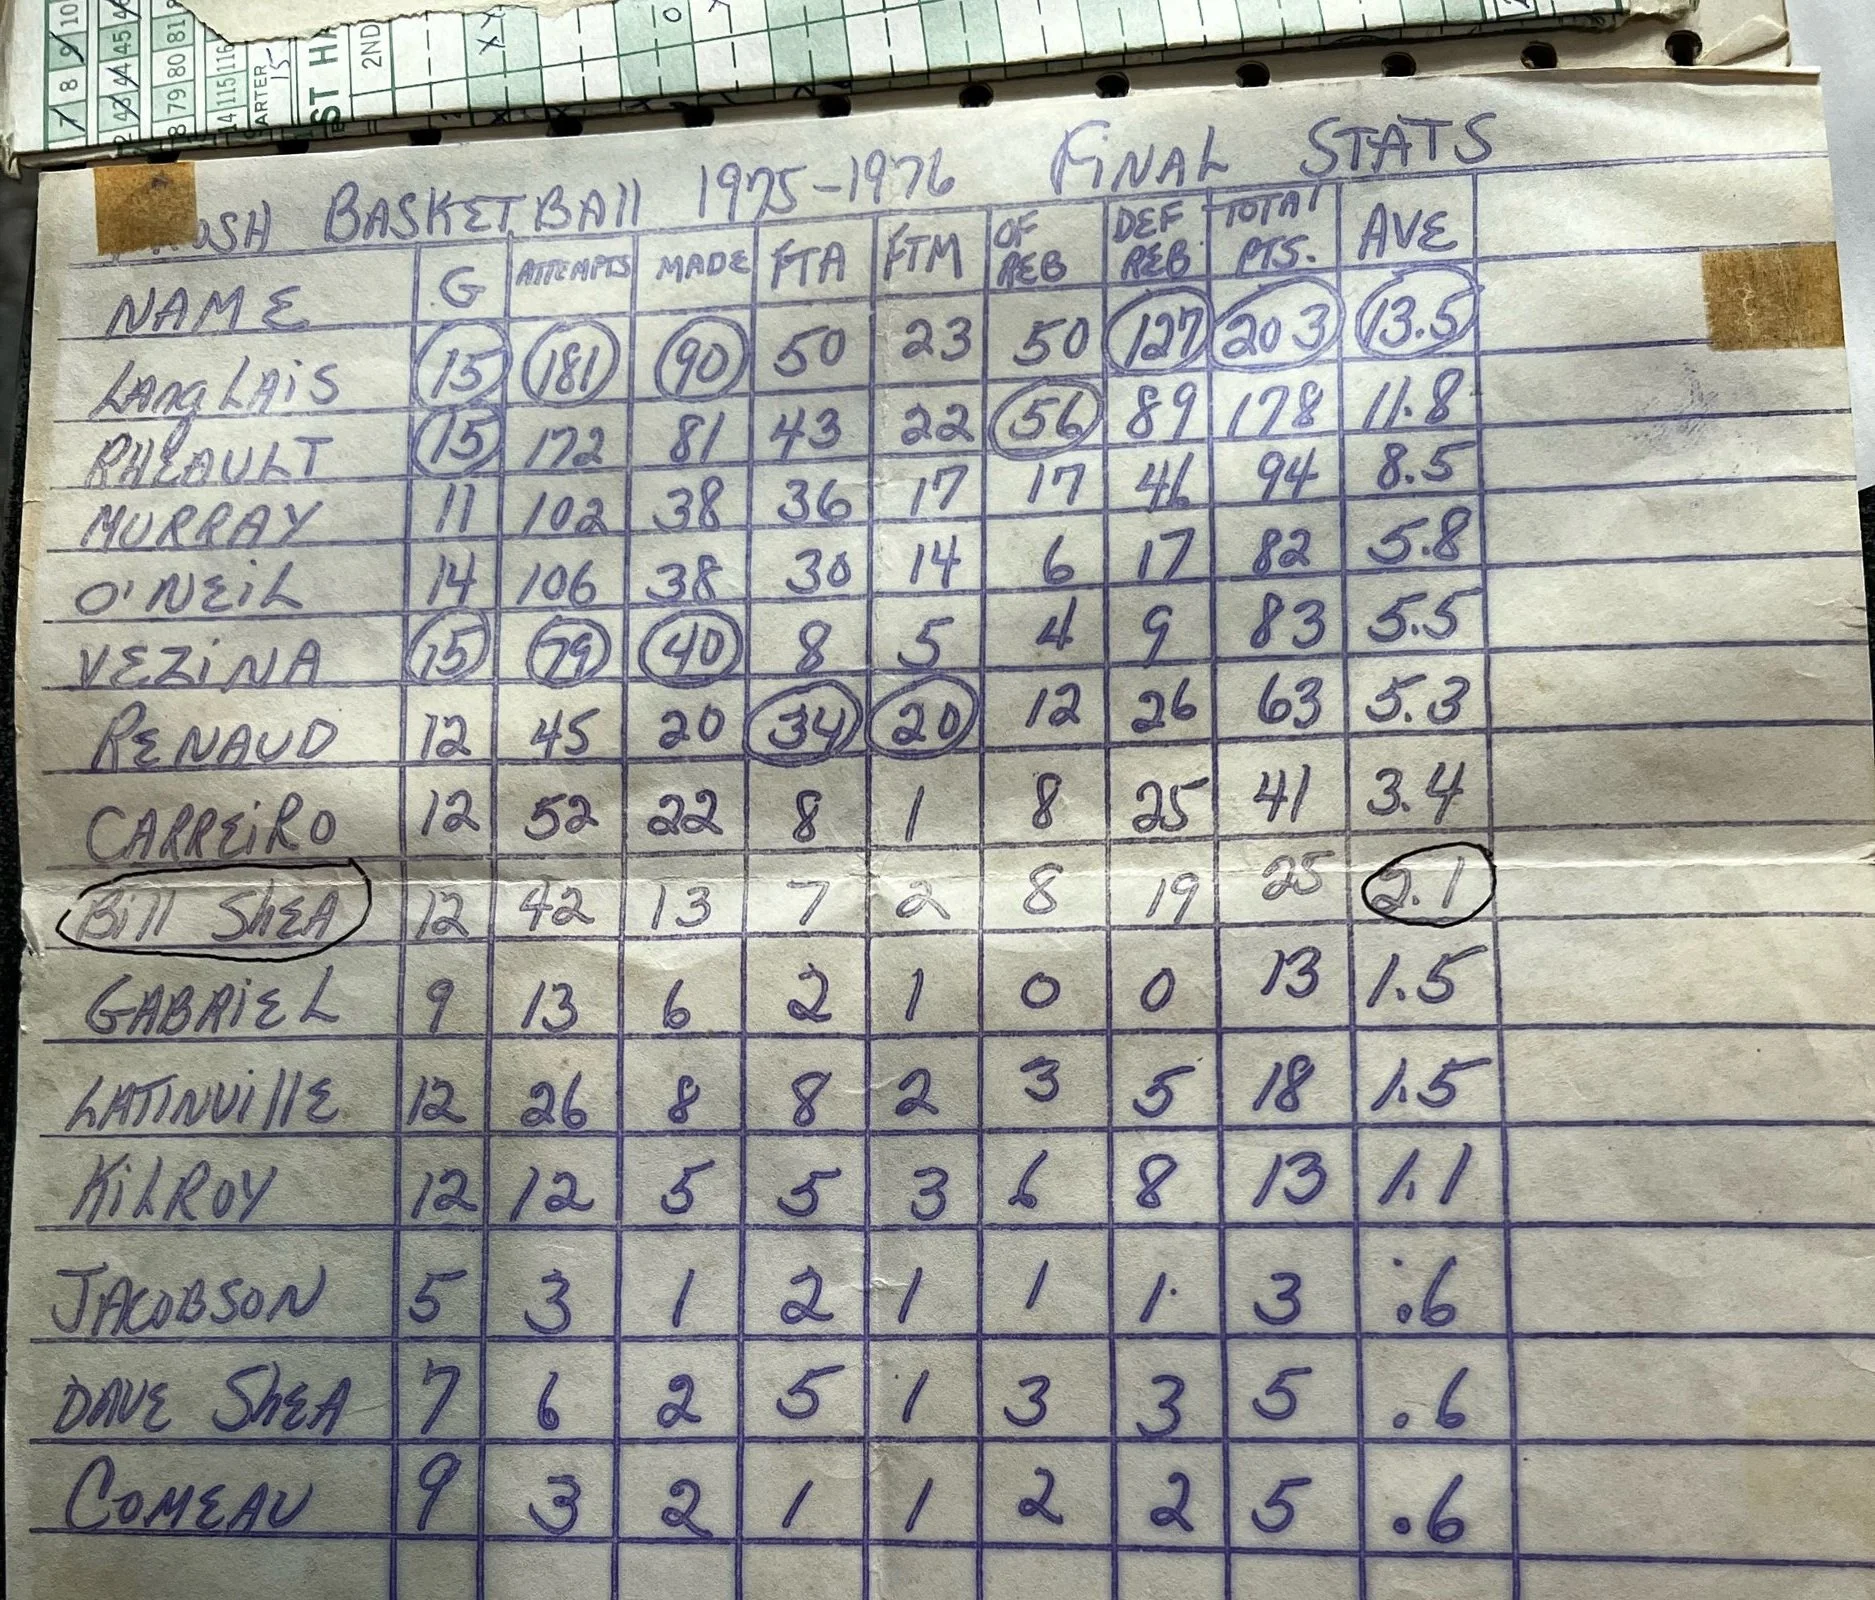 7 8 9 10
43 44 45
79 80 81
14 115 116
ARTER 15
ST HA
2ND
X X
O
OSH BASKETBAll 1975-1976 FINAL STATS
NAME G ATTEMPTS MADE FTA FTM OF REB DEF REB TOTAL PTS. AVE
LANGLAIS 15 181 90 50 23 50 127 203 13.5
RHEAULT 15 172 81 43 22 56 89 178 11.8
MURRAY 11 102 38 36 17 17 46 94 8.5
O'NEIL 14 106 38 30 14 6 17 82 5.8
VEZINA 15 79 40 8 5 4 9 83 5.5
RENAUD 12 45 20 34 20 12 26 63 5.3
CARREIRO 12 52 22 8 1 8 25 41 3.4
Bill SHEA 12 42 13 7 2 8 19 25 2.1
GABRIEL 9 13 6 2 1 0 0 13 1.5
LATINVILLE 12 26 8 8 2 3 5 18 1.5
KILROY 12 12 5 5 3 6 8 13 1.1
JACOBSON 5 3 1 2 1 1 1 3 .6
DAVE SHEA 7 6 2 5 1 3 3 5 .6
COMEAU 9 3 2 1 1 2 2 5 .6